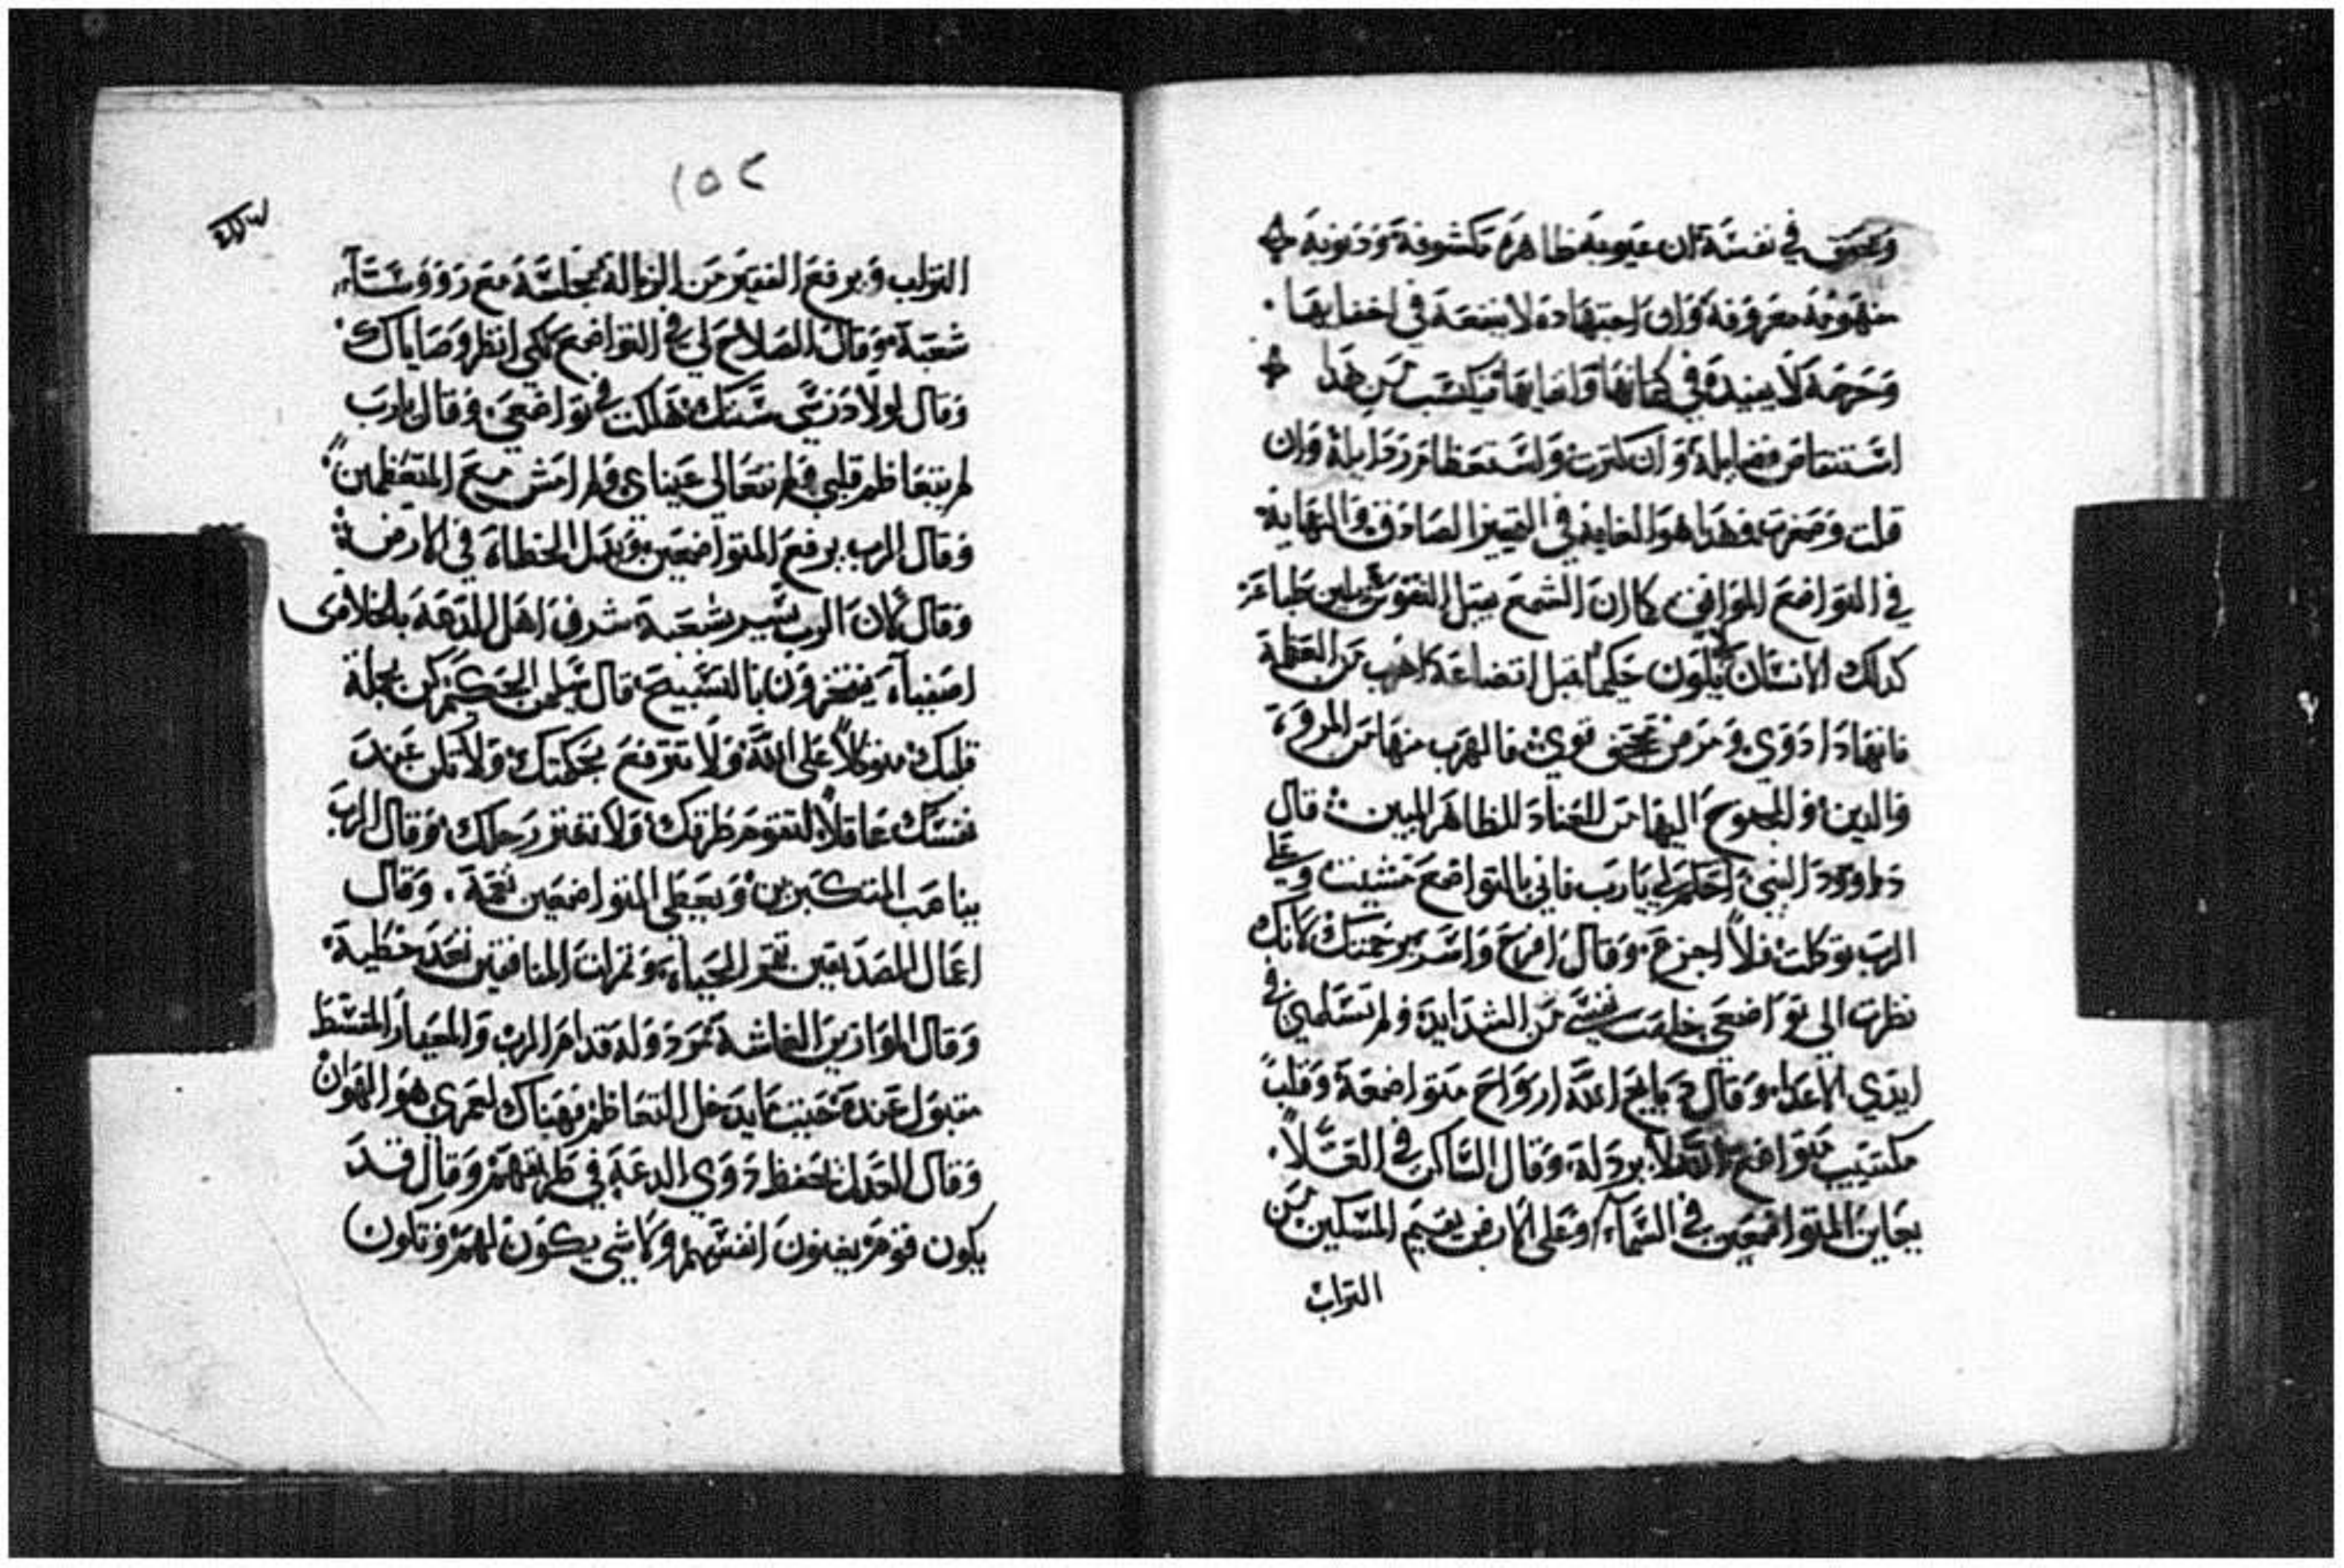 في نفسه ان عيوبه ظاهره مكشوفة وذنوبه
معروفة وان اجتهاده لا ينفعه في اخفايها
وحرصه لا يفيده في من هذا
فضايله وان كثرت واستعظام رذايله وان
قلت وصغرت فهذا هو الغاية في الصادق والنهاية
في التواضع كما ان الشمع قبل النقوش
كذلك الانسان يكون حكيما قبل اتضاعه اهرب من العظمة
فانها دا دوي ومرض قوي فالهرب منها من المروة
والدين اليها من العناد الظاهر المبين قال
داوود النبي احكم لي يارب فاني بالتواضع مشيت وعلي
الرب توكلت فلا اجزع وقال افرح واسر برحمتك لانك
نظرت الي تواضعي خلصت نفسي من الشدايد ولم تسلمني في
ايدي الاعدا وقال ذبايح الله ارواح متواضعة وقلب
مكتيب متواضع الله لا يرذله وقال الساكن في العلا
يعاين المتواضعين في السماء وعلي الارض يقيم المسكين من
التراب
١٥٢
التراب ويرفع الفقير من الزبالة يجلسه مع رووساء
شعبة وقال الصلاح لي في التواضع لكي انظر وصاياك
وقال لولا درسي سننك هلكت في تواضعي وقال يارب
لم يتعاظم قلبي ولم تتعالي عيناي ولم امش مع المتعظمين
وقال الرب يرفع المتواضعين ويذل الخطاة في الارض
وقال لان الرب يسر بشعبة شرف اهل الدعة بالخلاص
اصفياه يفتخرون بالتسبيح قال سليمن الحكيم كن بجملة
قلبك متوكلا علي الله ولا تترفع بحكمتك ولا تكن عند
نفسك عاقلا لتقوم طرقك ولا تعتر رجلك وقال الرب
يناصب المتكبرين ويعطي المتواضعين نعمة . وقال
اعمال الصديقين الحياة وثمرات المنافقين خطية
وقال الموازين الغاشة مرذولة قدام الرب والمعيار المقسط
مقبول عنده حيث ما يدخل التعاظم فهناك لعمري هو الهوان
وقال العدل يحفظ ذوي الدعة في طريقهم وقال قد
يكون قوم يغنون انفسهم ولا شي يكون لهم وتكون